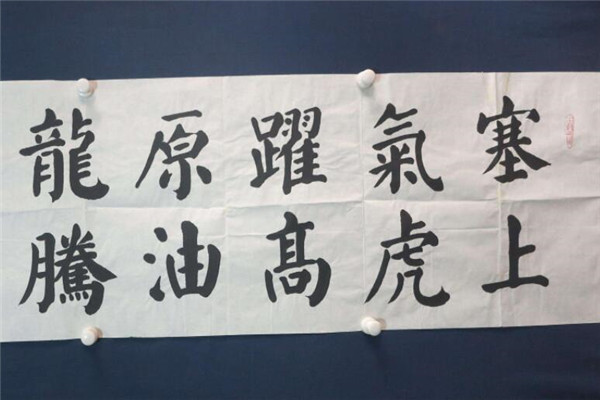 塞上
氣虎
躍高
原油
龍騰